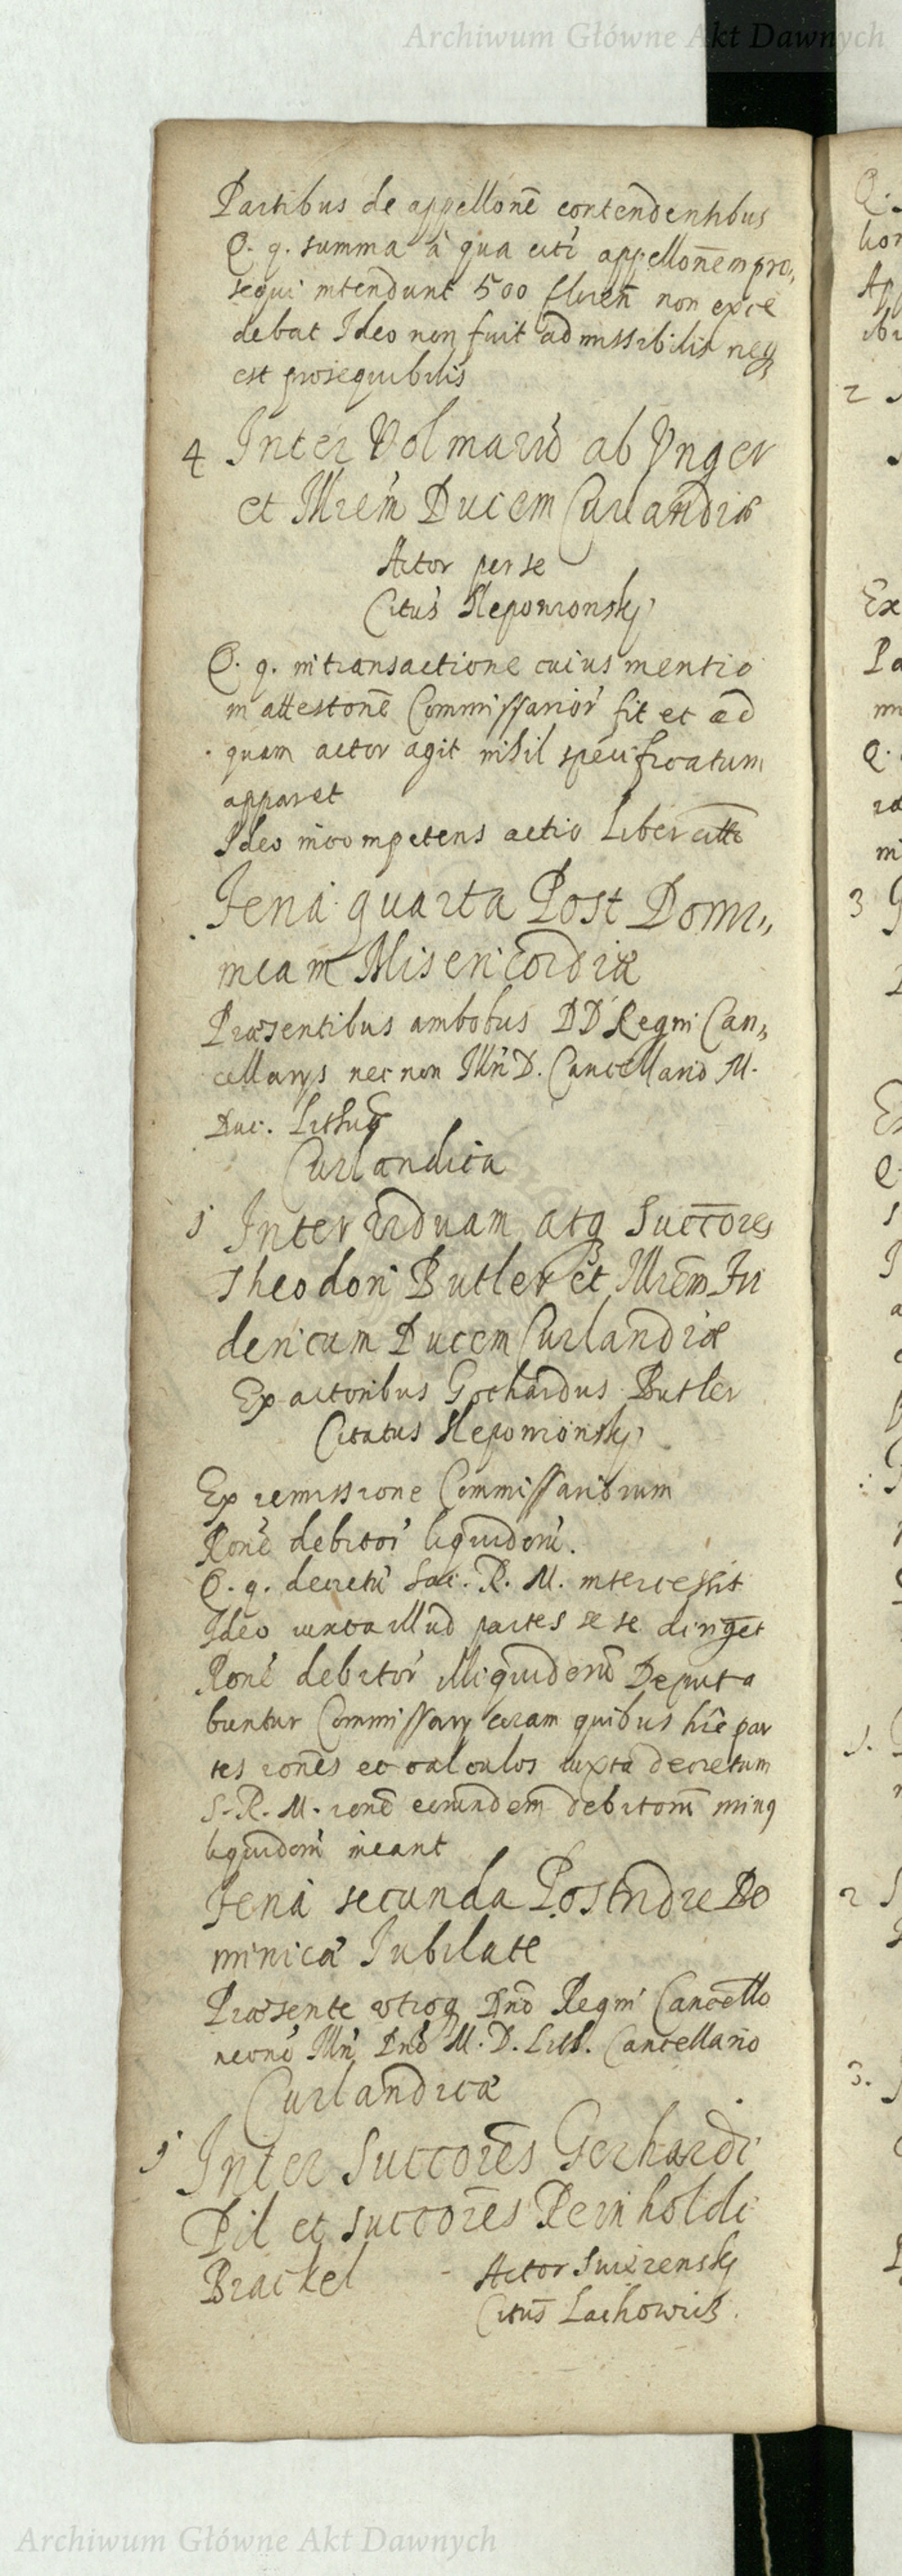 Archiwum Główne Akt Dawnych
Partibus de appellonē contendentibus
Q. q. summa à qua citi appellonēm pro,,
sequi intendunt 500 floren non exce
debat Ideo non fuit admissibilis neq;
est prosequibilis
4 Inter Volmarū ab Vnger
et Illrem Ducem Curlandiæ
Actor per se
Citus Slepowronsky
Q. q. in transactione cuius mentio
in attestonē Commissarior fit et ad
quam actor agit nihil specificatum
apparet
Ideo incompetens actio Liber citt
Feria quarta Post Domi,,
nicam Misericordiæ
Præsentibus ambobus DD Regni Can,,
cellarys nec non Illri D. Cancellario M.
Duc. Lithuæ
Curlandica
1 Inter viduam atq Succōres
Theodori Butler et Illrem Fri
dericum Ducem Curlandiæ
Ex actoribus Gothardus Butler
Citatus Slepowronsky
Ex remissione Commissariorum
Rone debitor liquidorū.
Q. q. decretū Sac. R. M. intercessit
Ideo iuxta illud partes se se diriget
Rone debitor illiquidorū Deputa
buntur Commissary coram quibus hic par
tes rones et calculos iuxta decretum
S. R. M. rone eorundem debitorū minq
liquidorū ineant
Feria secunda Postridie Do
minicæ Iubilate
Præsente vtroq Dno Regni Cancello
necno Illri Dno M. D. Lith. Cancellario
Curlandica
1 Inter Succores Gerhardi
Pil et succores Reinholdi
Brackel - Actor Swirensky
Citus Lachowicz.
Archiwum Główne Akt Dawnych